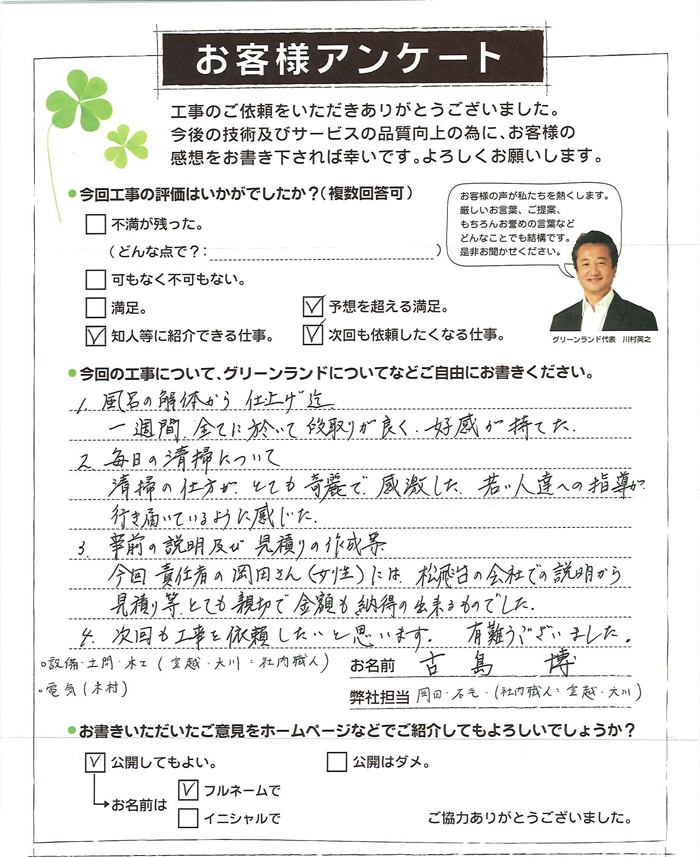 お客様アンケート
工事のご依頼をいただきありがとうございました。
今後の技術及びサービスの品質向上の為に、お客様の
感想をお書き下されば幸いです。よろしくお願いします。
●今回工事の評価はいかがでしたか？（複数回答可）
不満が残った。
（どんな点で？：　）
可もなく不可もない。
満足。
予想を超える満足。
知人等に紹介できる仕事。
次回も依頼したくなる仕事。
お客様の声が私たちを熱くします。
厳しいお言葉、ご提案、
もちろんお誉めの言葉など
どんなことでも結構です。
是非お聞かせください。
グリーンランド代表　川村英之
●今回の工事について、グリーンランドについてなどご自由にお書きください。
1. 風呂の解体から 仕上げ迄
一週間、全てに於いて 段取りが良く、好感が持てた。
2. 毎日の清掃について
清掃の仕方が、とても奇麗で、感激した。若い人達への指導が
行き届いているように感じた。
3. 事前の説明及び 見積りの作成等
今回 責任者の岡田さん（女性）には、松飛台の会社での説明から
見積り等、とても親切で金額も納得の出来るものでした。
4. 次回も工事を依頼したいと思います。 有難うございました。
○設備・土間・木工（宮越・大川：社内職人）
・電気（木村）
お名前 古島 博
弊社担当 岡田・石毛・（社内職人：宮越・大川）
●お書きいただいたご意見をホームページなどでご紹介してもよろしいでしょうか？
公開してもよい。
公開はダメ。
お名前は
フルネームで
イニシャルで
ご協力ありがとうございました。